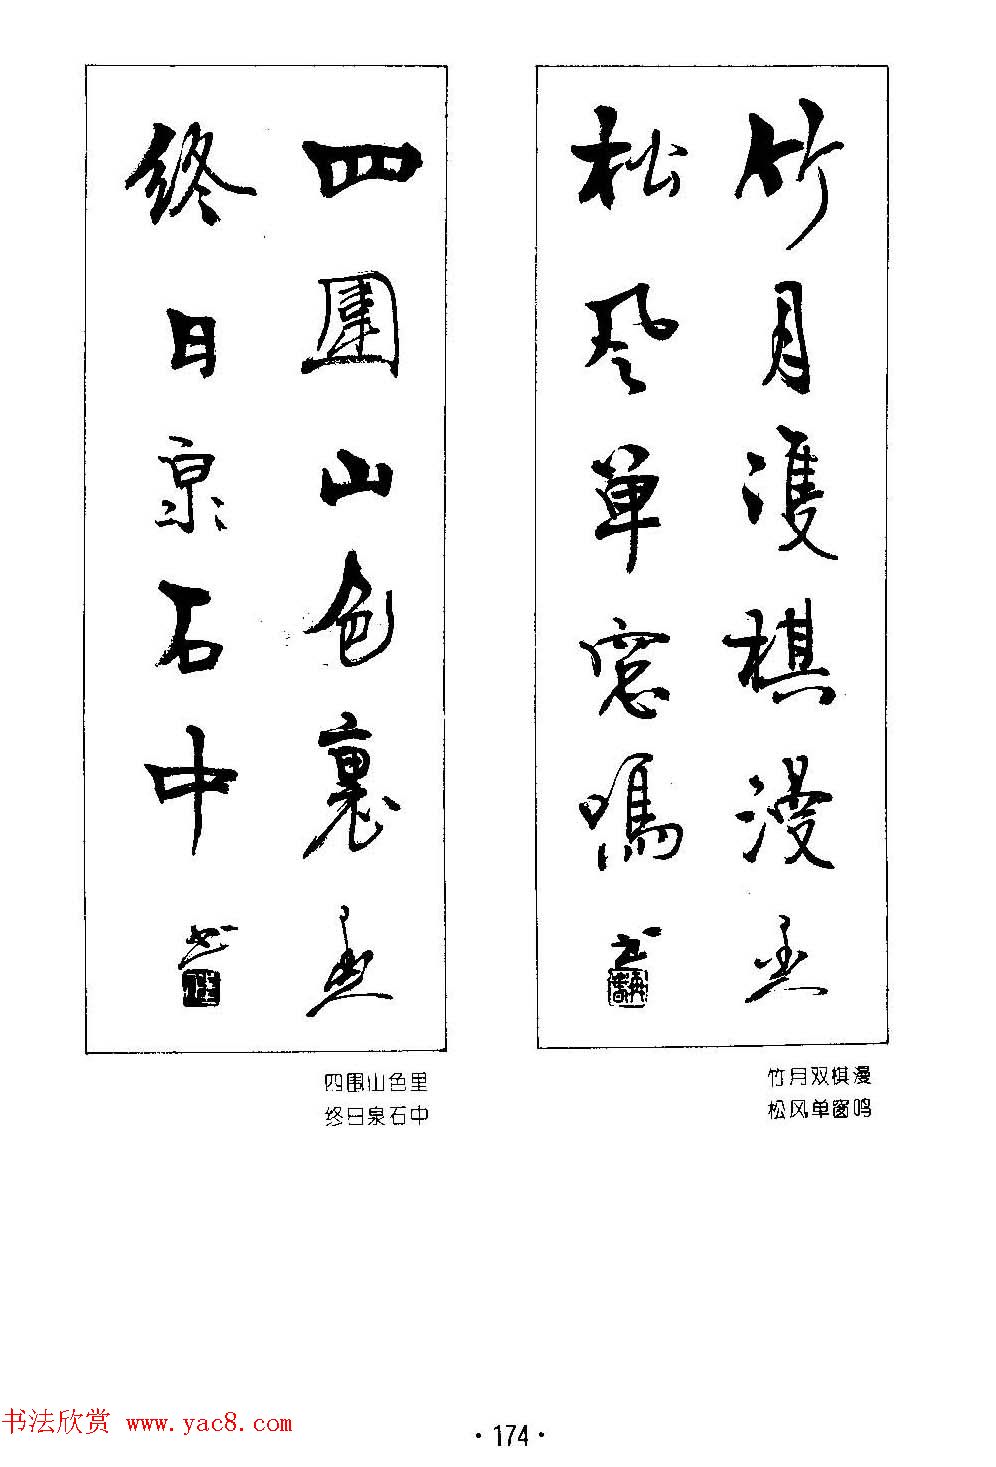 竹月雙棋漫
松風單窓鳴 书
竹月双棋漫
松风单窗鸣
四圍山色裏
終日泉石中 书
四围山色里
终日泉石中
书法欣赏 www.yac8.com
·174·